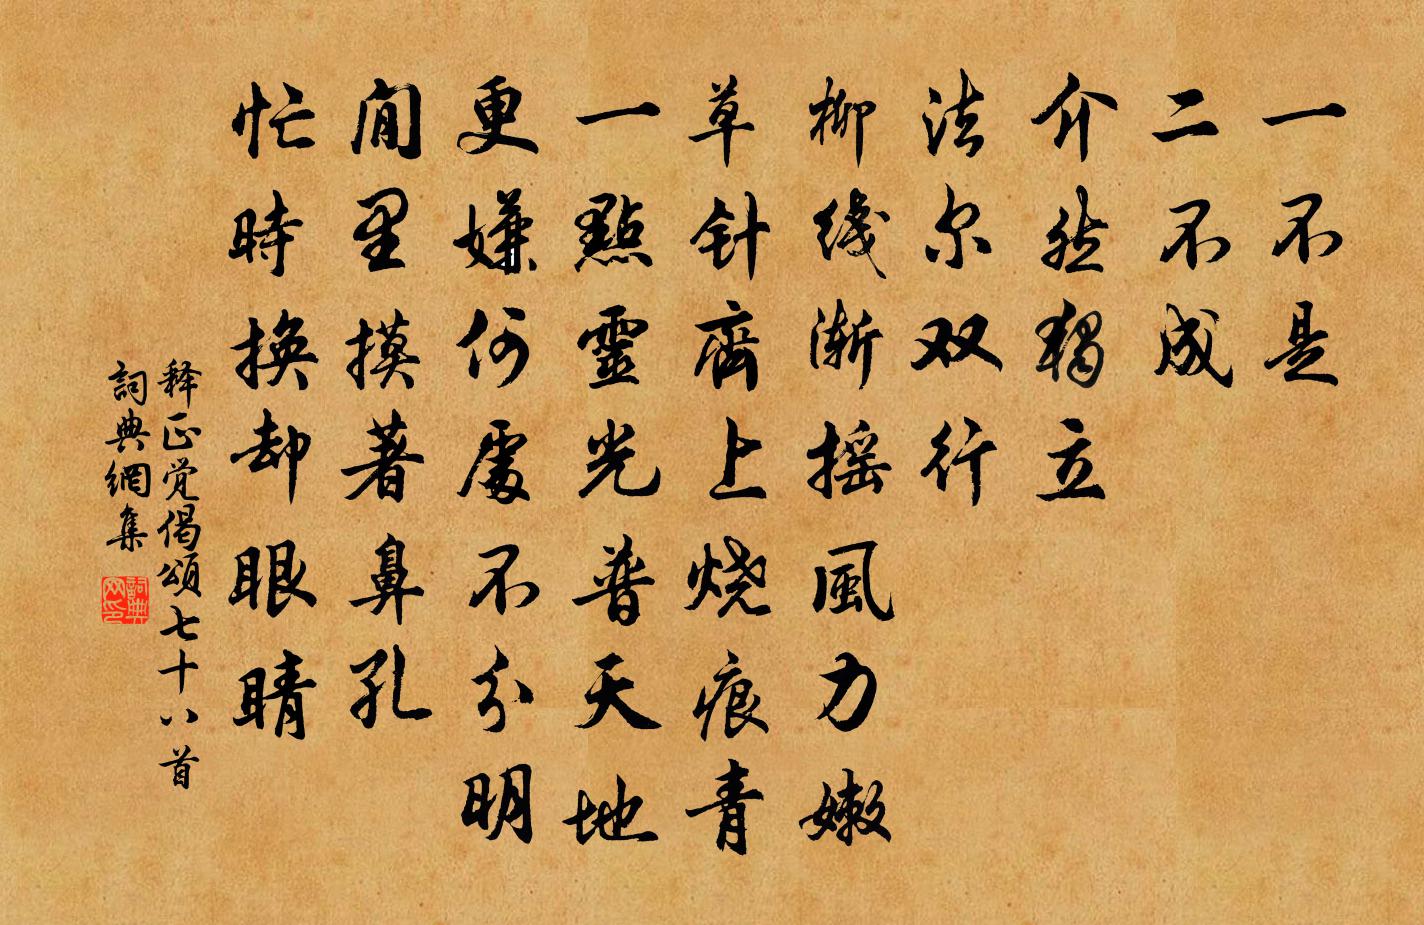 一不是
二不成
介然独立
法尔双行
柳线渐摇風力嫩
草针齊上烧痕青
一點靈光普天地
更嫌何處不分明
閒里摸著鼻孔
忙時换却眼睛
释正觉偈頌七十八首
詞典網集
詞典网印